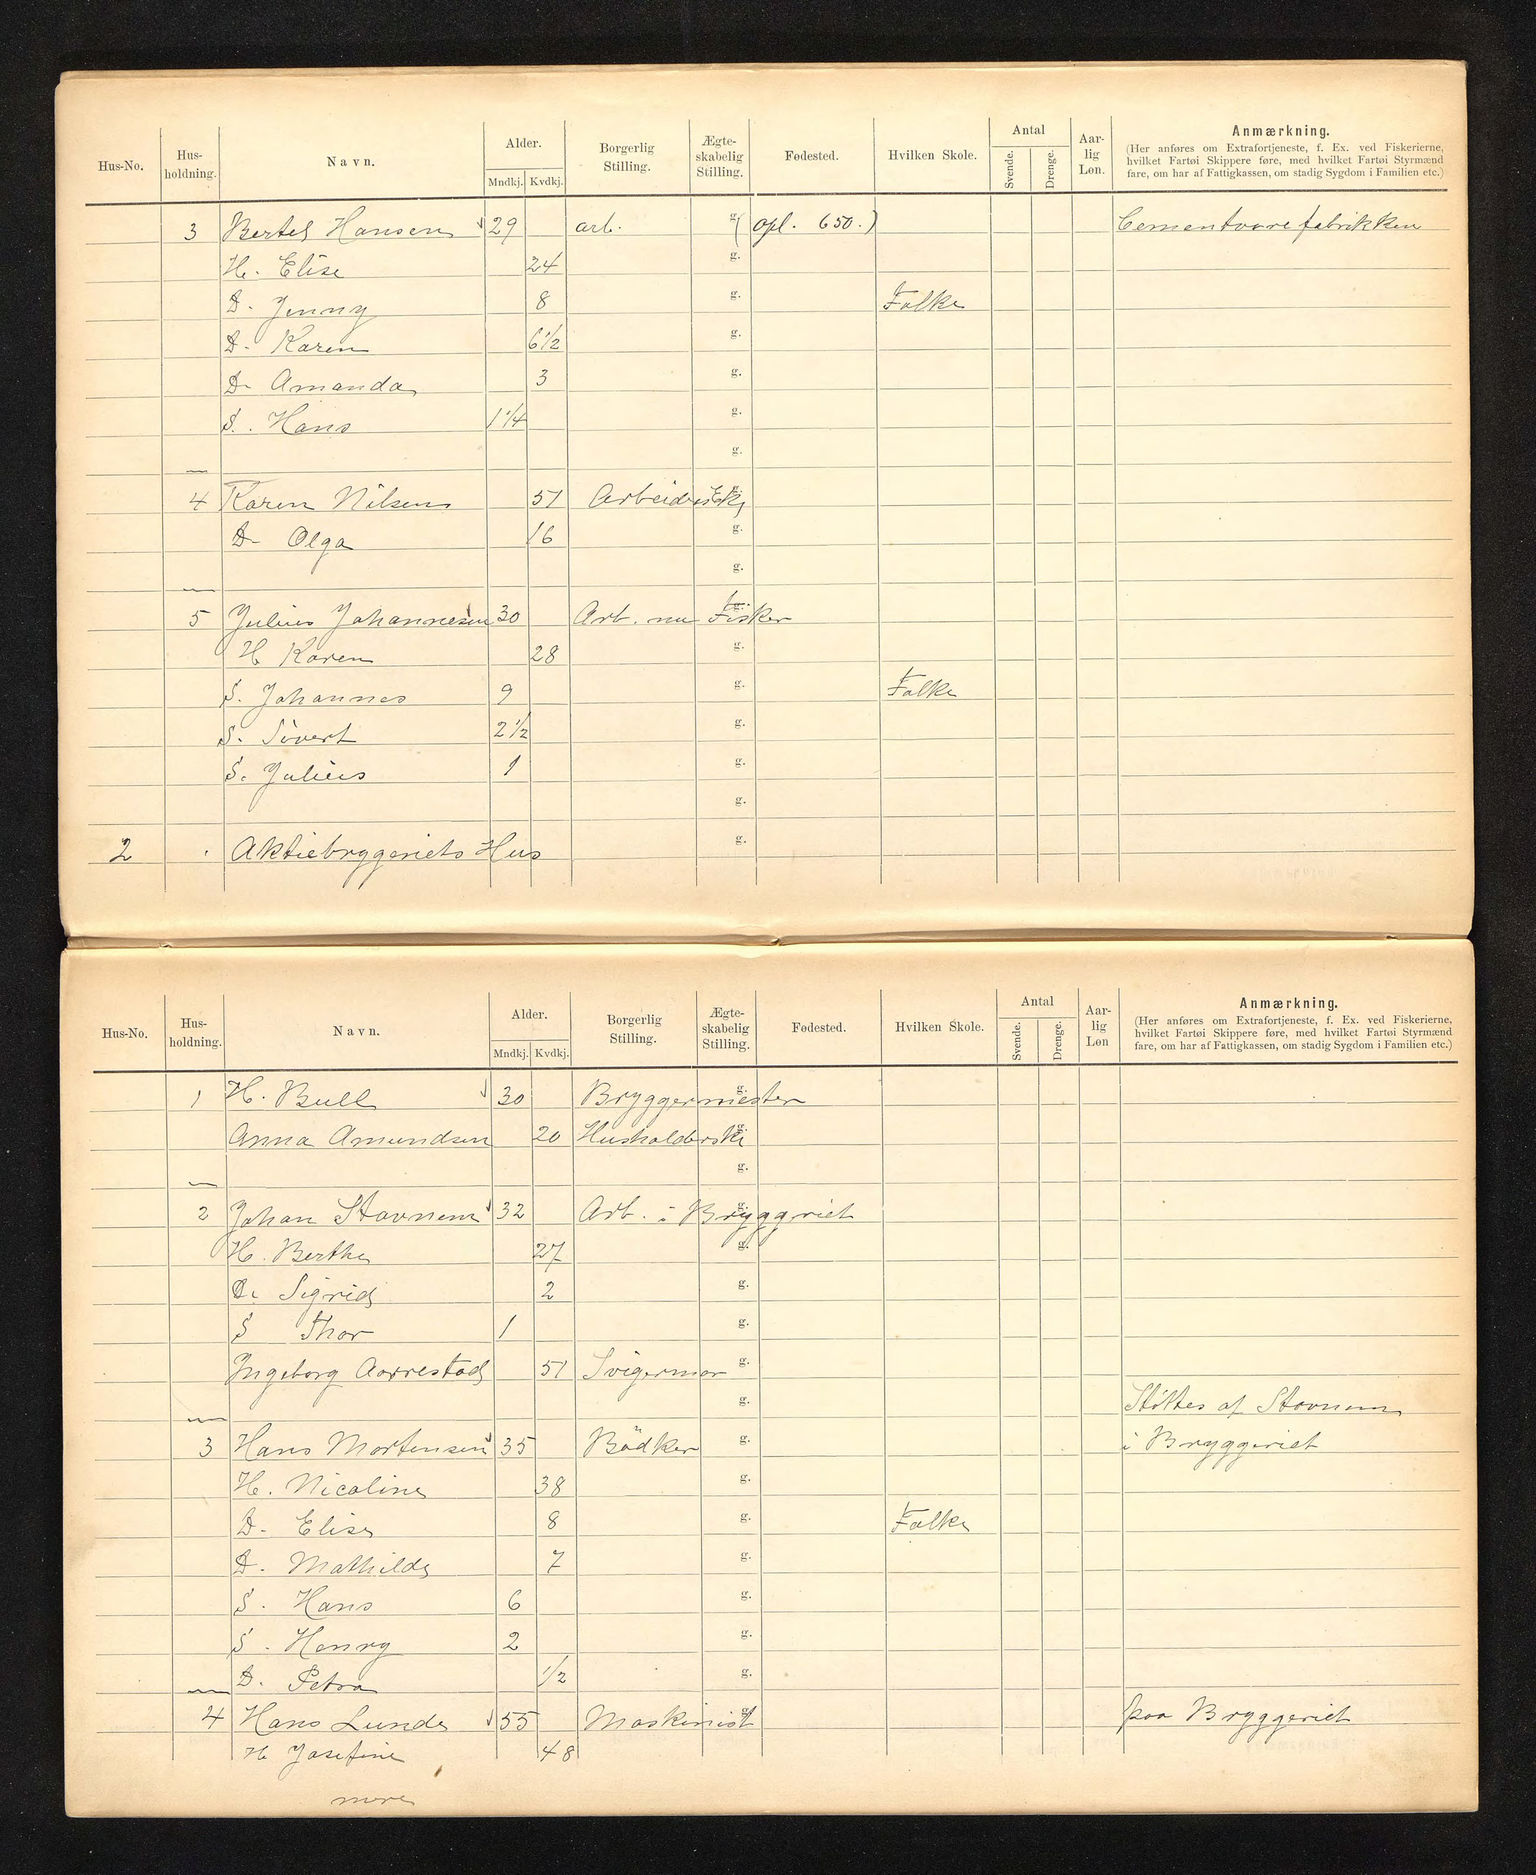 Hus-No. Hus-holdning. Navn. Alder. Mndkj. Kvdkj. Borgerlig Stilling. Ægte-skabelig Stilling. Fødested. Hvilken Skole. Antal Svende. Drenge. Aar-lig Løn. Anmærkning.
(Her anføres om Extrafortjeneste, f. Ex. ved Fiskerierne,
hvilket Fartøi Skippere føre, med hvilket Fartøi Styrmænd
fare, om har af Fattigkassen, om stadig Sygdom i Familien etc.)
3 Bertel Hansen 29 arb. g. (opl. 650.) Cementvarefabrikken
H. Elise 24 g.
D. Jenny 8 g. Folke
D. Karen 6 1/2 g.
D. Amanda 3 g.
S. Hans 1 1/4 g.
g.
4 Karen Nilsen 51 Arbeidersk. g.
D. Olga 16 g.
g.
5 Julius Johannesen 30 Arb. nu Fisker g.
H Karen 28 g.
S. Johannes 9 g. Folke
S. Sivert 2 1/2 g.
S. Julius 1 g.
g.
2 Aktiebryggeriets Hus g.
Hus-No. Hus-holdning. Navn. Alder. Mndkj. Kvdkj. Borgerlig Stilling. Ægte-skabelig Stilling. Fødested. Hvilken Skole. Antal Svende. Drenge. Aar-lig Løn Anmærkning.
(Her anføres om Extrafortjeneste, f. Ex. ved Fiskerierne,
hvilket Fartøi Skippere føre, med hvilket Fartøi Styrmænd
fare, om har af Fattigkassen, om stadig Sygdom i Familien etc.)
1 H. Bull 30 Bryggermester g.
Anna Amundsen 20 Husholderske g.
g.
2 Johan Stavnem 32 Arb. i Bryggriet g.
H. Berthe 27 g.
D. Sigrid 2 g.
S Thor 1 g.
Ingeborg Aarrestad 51 Svigermor g.
g. Støttes af Stavnem
3 Hans Mortensen 35 Bödker g. i Bryggeriet
H. Nicoline 38 g.
D. Elise 8 g. Folke
D. Mathilde 7 g.
S. Hans 6 g.
S. Henry 2 g.
D. Petra 1/2 g.
4 Hans Lunde 55 Maskinist g. paa Bryggeriet
H Josefine 48
mere